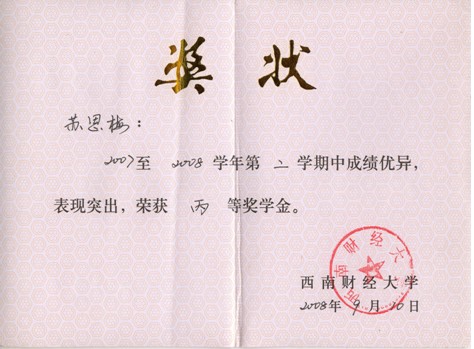 奖状
苏思梅：
2007至 2008 学年第 二 学期中成绩优异，
表现突出，荣获 丙 等奖学金。
西南财经大学
2008年 9 月 20 日
西南财经大